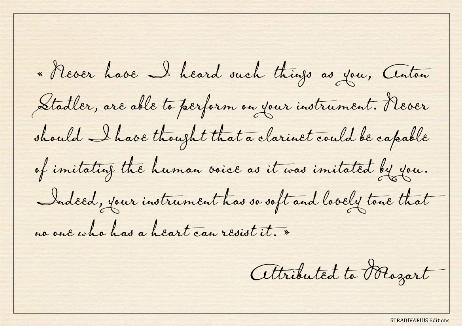 « Never have I heard such things as you, Anton
Stadler, are able to perform on your instrument. Never
should I have thought that a clarinet could be capable
of imitating the human voice as it was imitated by you.
Indeed, your instrument has so soft and lovely tone that
no one who has a heart can resist it. »
Attributed to Mozart
STRADIVARIUS Editions